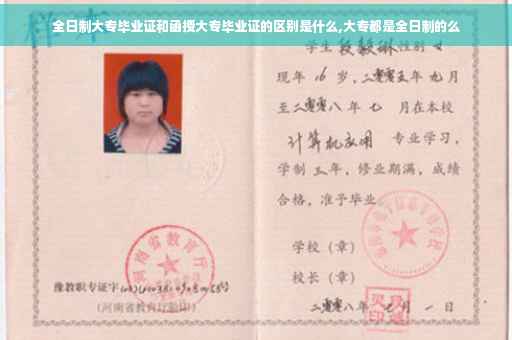 全日制大专毕业证和函授大专毕业证的区别是什么,大专都是全日制的么
样本
学生 性别 女
现年 16 岁,二零零五年 九月
至二零零八年 七 月在本校
计算机应用 专业学习,
学制 三年,修业期满,成绩
合格,准予毕业
学校(章)
校长(章)
河南省教育厅
豫教职专证字
(河南省教育厅验印)
二零零八年 七 月 一 日